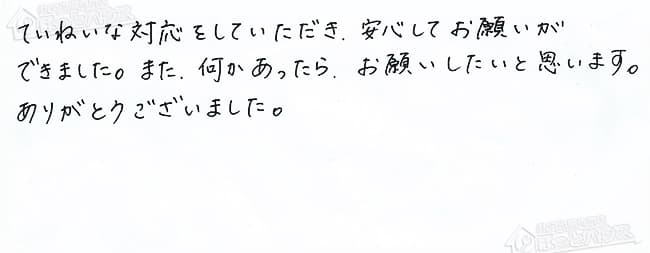 ていねいな対応をしていただき、安心してお願いが
できました。また、何かあったら、お願いしたいと思います。
ありがとうございました。